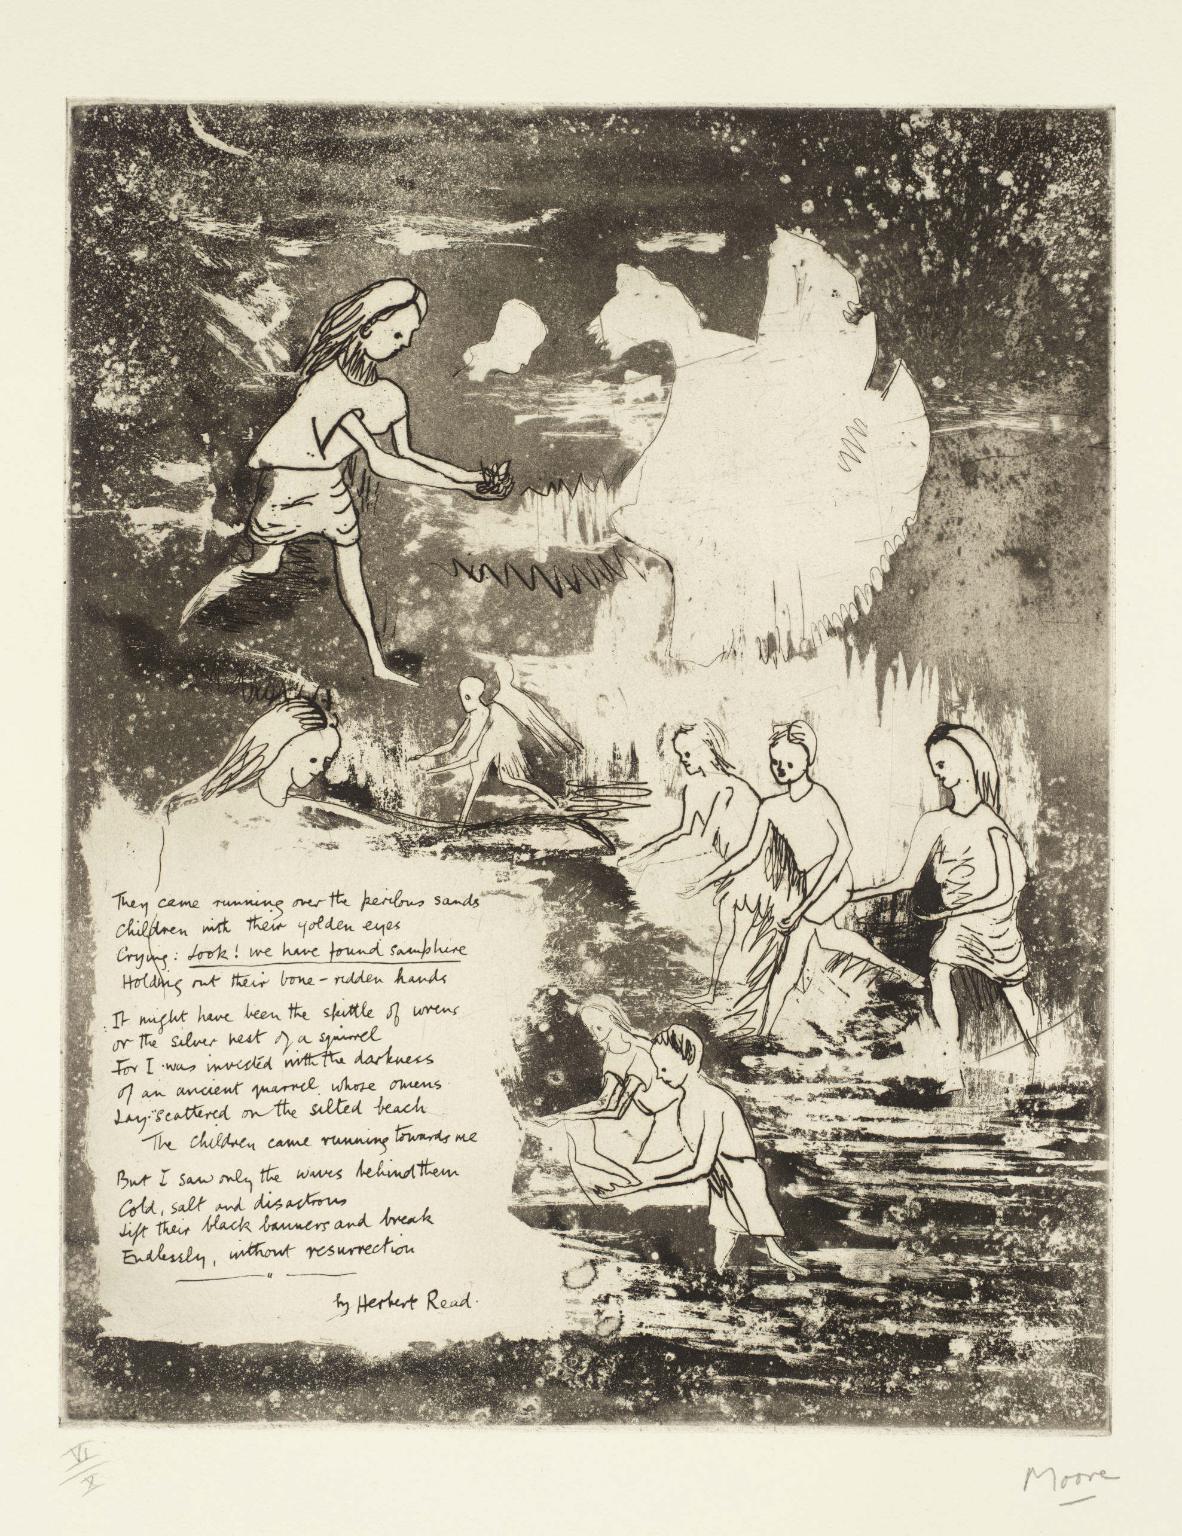 They came running over the perilous sands
Children with their golden eyes
Crying: Look! we have found samphire
Holding out their bone-ridden hands
It might have been the spittle of wrens
or the silver nest of a squirrel
For I was invested with the darkness
of an ancient quarrel whose omens
Lay scattered on the silted beach
The children came running towards me
But I saw only the waves behind them
Cold, salt and disastrous
Lift their black banners and break
Endlessly, without resurrection
by Herbert Read.
VI
X
Moore